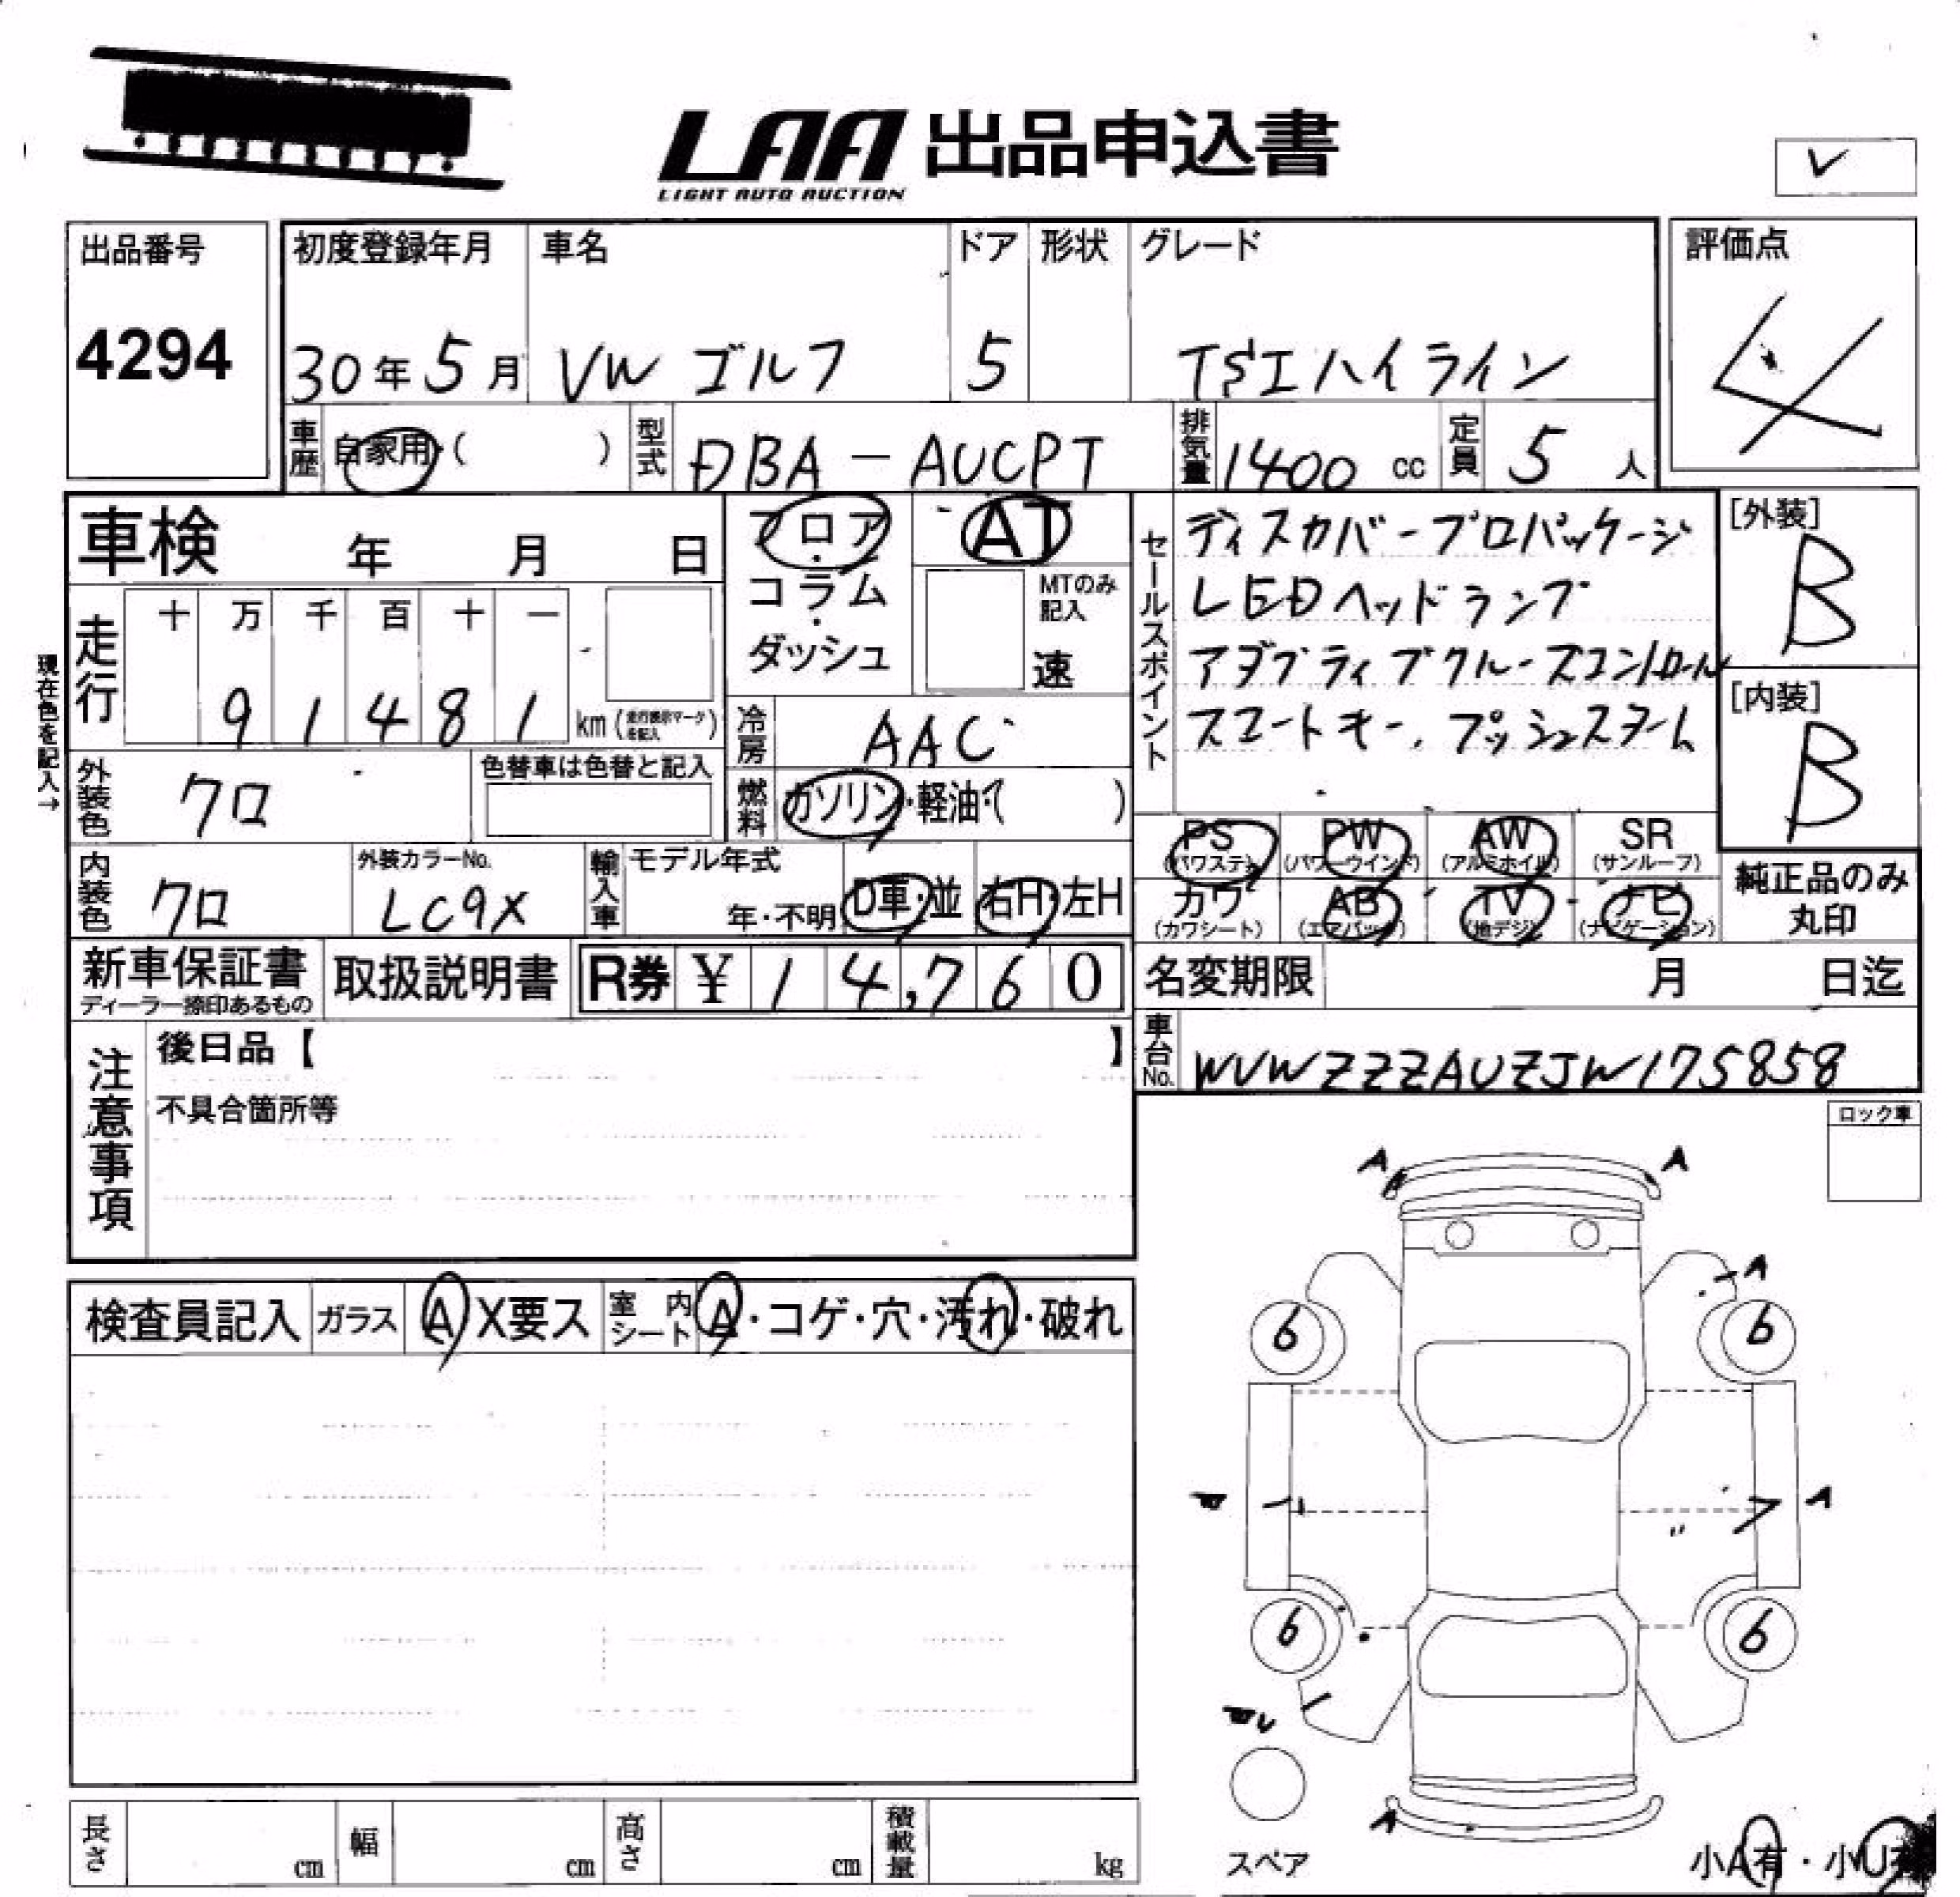 LAA 出品申込書
LIGHT AUTO AUCTION
出品番号
4294
初度登録年月
30年 5月
車名
VW ゴルフ
ドア
5
形状
グレード
TSIハイライン
評価点
4
車歴
自家用・( )
型式
DBA-AUCPT
排気量
1400 cc
定員
5 人
車検 年 月 日
フロア・コラム・ダッシュ
AT
MTのみ記入
速
セールスポイント
ディスカバープロパッケージ
LEDヘッドランプ
アダプティブクルーズコントロール
スマートキー、プッシュスタート
[外装]
B
[内装]
B
現在色を記入→
走行
十 万 千 百 十 一
9 1 4 8 1 km (走行表示マークを記入)
冷房
AAC
外装色
クロ
色替車は色替と記入
燃料
ガソリン・軽油・( )
PS (パワステ)
PW (パワーウインド)
AW (アルミホイル)
SR (サンルーフ)
カワ (カワシート)
AB (エアバック)
TV (地デジ)
ナビ (ナビゲーション)
純正品のみ丸印
内装色
クロ
外装カラーNo.
LC9X
輸入車
モデル年式
年・不明
D車・並
右H・左H
新車保証書
ディーラー捺印あるもの
取扱説明書
R券 ¥ 14,760
名変期限 月 日迄
車台No.
WVWZZZAUZJW175858
注意事項
後日品【 】
不具合箇所等
ロック車
検査員記入
ガラス
A X要ス
室内シート
A・コゲ・穴・汚れ・破れ
A
A
A
6
6
A
6
6
A
スペア
長さ cm
幅 cm
高さ cm
積載量 kg
小A有・小U